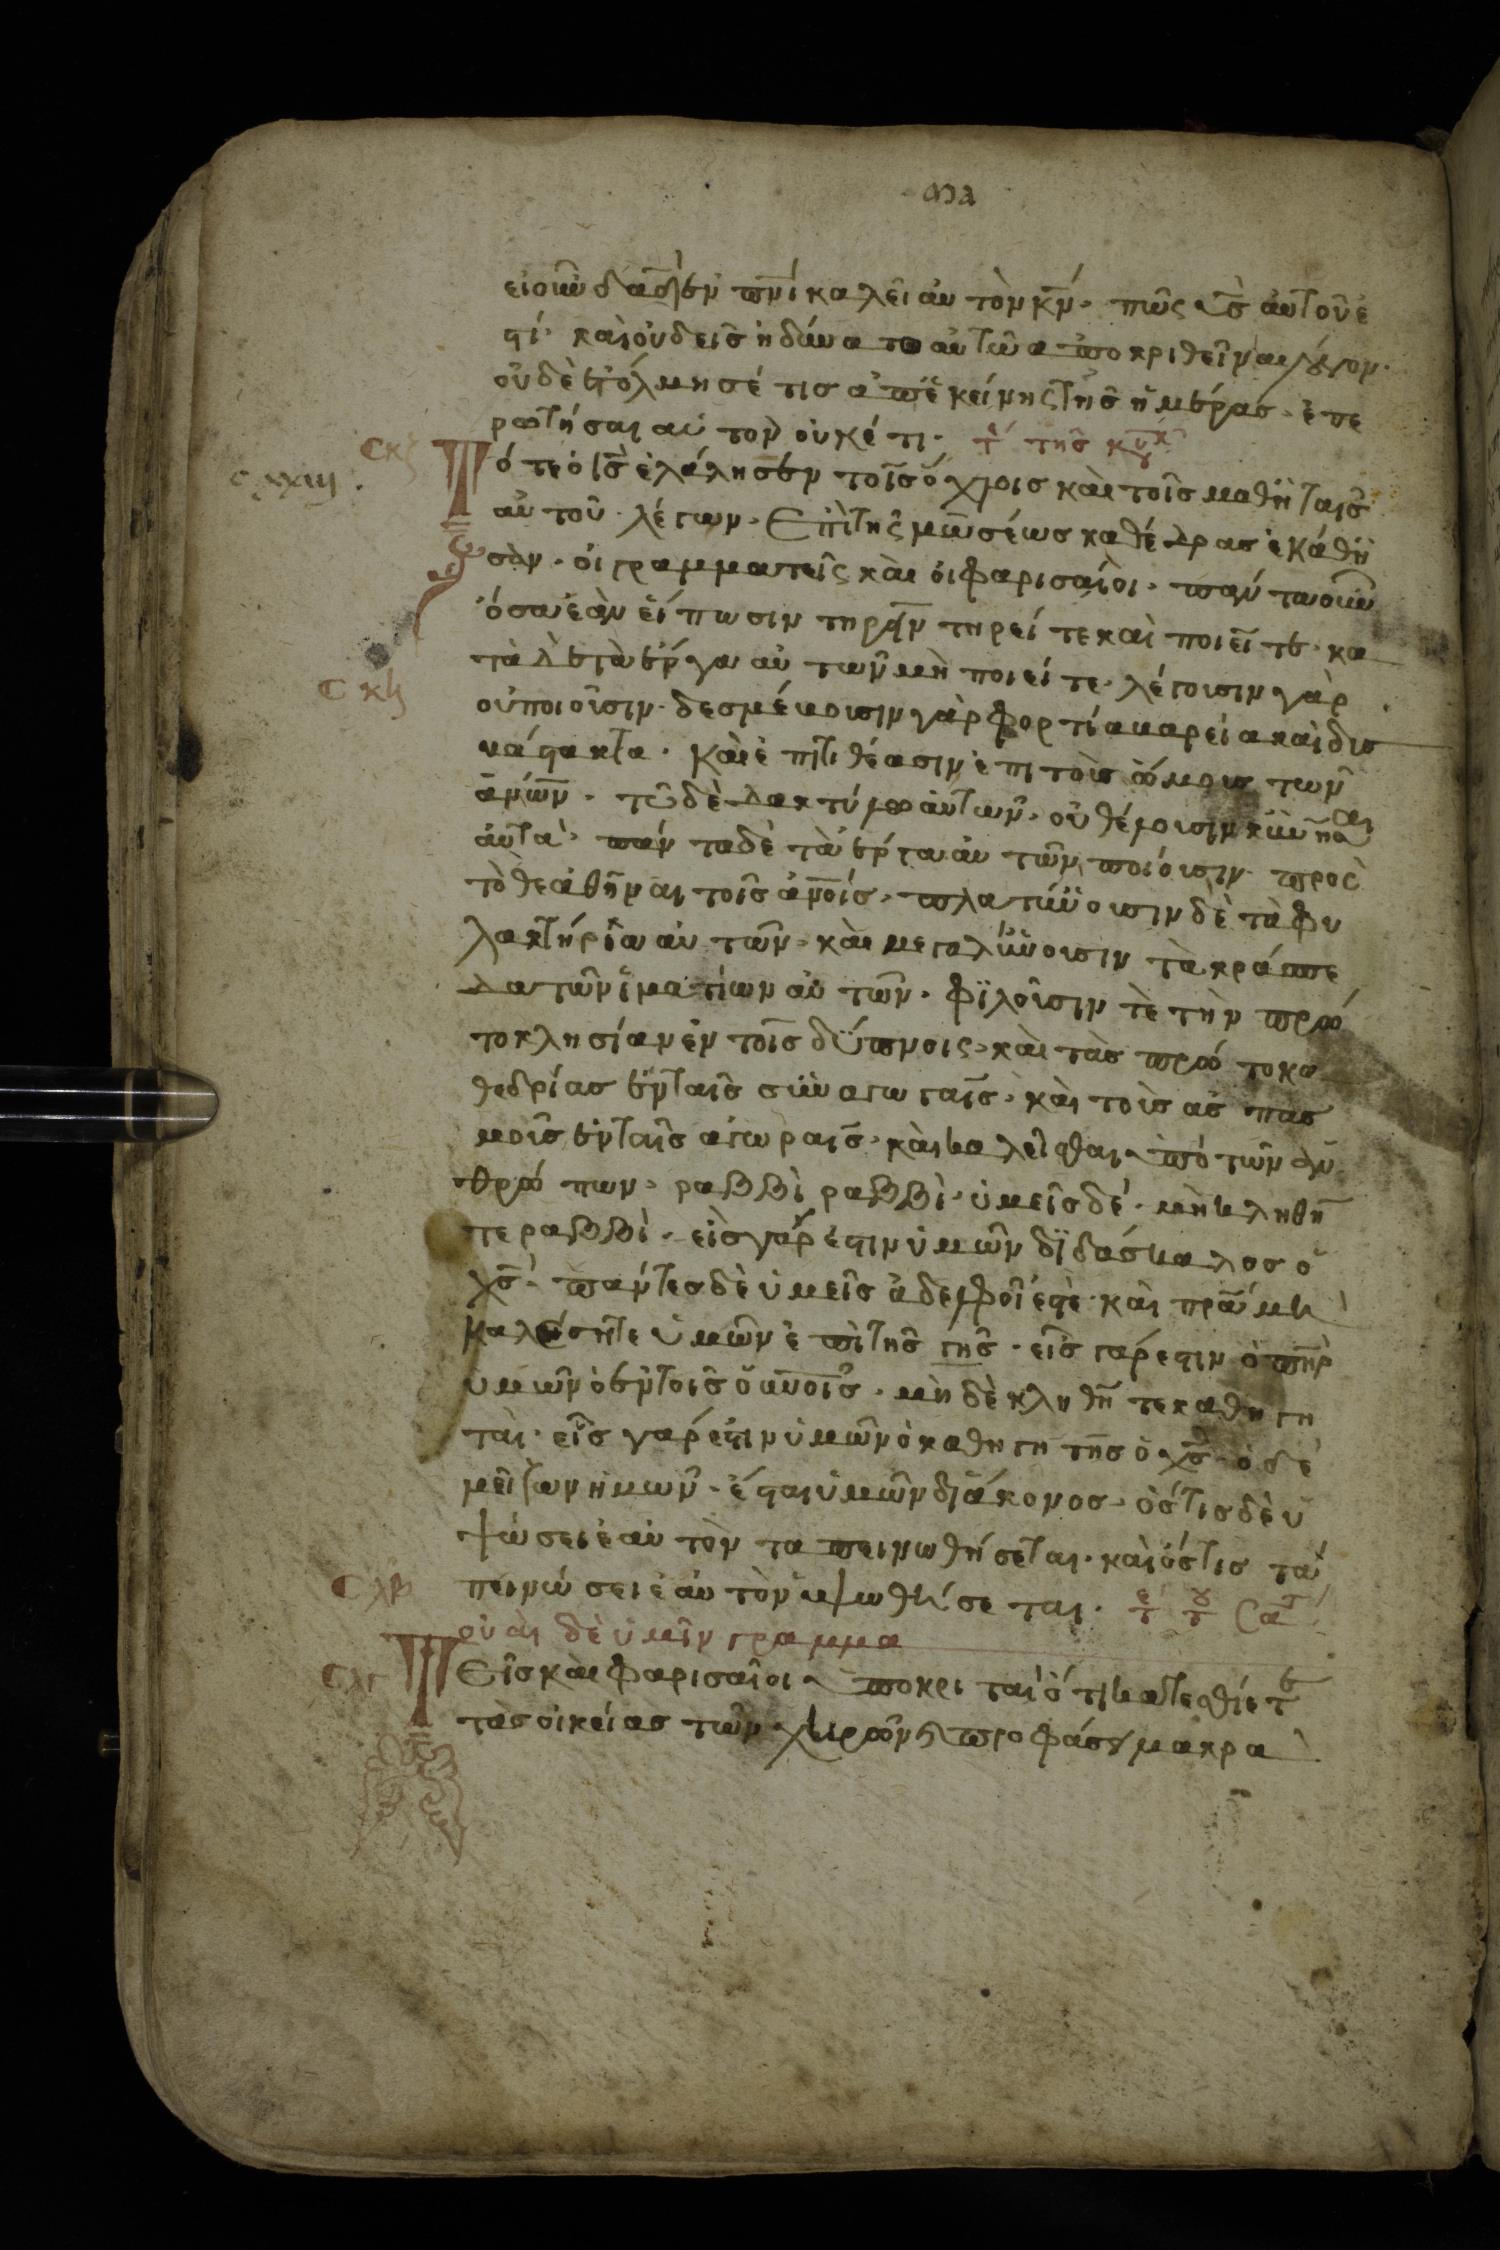 μα
εἰ οὖν δα̅δ̅ ἐν πν̅ι καλεῖ αὐτὸν κ̅ν̅· πῶς υ̅ς̅ αὐτοῦ ἐ
στί· καὶ οὐδεὶς ἠδύνατο αὐτῶ ἀποκριθεῖναι λόγον·
οὐδὲ ἐτόλμησέ τις ἀπ' ἐκείνης τῆς ἡμέρας· ἐπε
ρωτῆσαι αὐτὸν οὐκέτι· τῆς κυ
Τότε ὁ ι̅ς̅ ἐλάλησεν τοῖς ὄχλοις καὶ τοῖς μαθηταῖς
αὐτοῦ· λέγων· Ἐπὶ τῆς μωσέως καθέδρας ἐκάθη
σαν· οἱ γραμματεῖς καὶ οἱ φαρισαῖοι· πάντα οὖν
ὅσα ἐὰν εἴπωσιν τηρεῖν τηρεί τε καὶ ποιεῖτε· κα
τὰ δὲ τὰ ἔργα αὐτῶν μὴ ποιεί τε· λέγουσιν γὰρ
οὐ ποιοῦσιν· δεσμεύουσιν γὰρ φορτία βαρεία καὶ δυσ
βάστακτα· καὶ ἐπιτιθέασιν ἐπι τοὺς ὤμους τῶν
ἀν̅ων̅· τῶ δὲ δακτύλω αὐτῶν· οὐ θέλουσιν κινῆσαι
αὐτά· πάντα δὲ τὰ ἔργα αὐτῶν ποιοῦσιν πρὸς
τὸ θεαθῆναι τοῖς ἀν̅οις· πλατύνουσιν δὲ τὰ φυ
λακτήρια αὐτῶν· καὶ μεγαλύνουσιν τὰ κράσπε
δα τῶν ἱματίων αὐτῶν· φιλοῦσιν τὲ τὴν πρω
τοκλησίαν ἐν τοῖς δείπνοις· καὶ τὰς πρωτοκα
θεδρίας ἐν ταῖς συναγωγαῖς· καὶ τοὺς ἀσπασ
μοὺς ἐν ταῖς ἀγωραῖς· καὶ καλεῖσθαι ὑπὸ τῶν ἀν
θρώπων· ραββὶ ραββὶ· ὑμεῖς δέ· μὴ κληθῆ
τε ραββὶ· εἷς γάρ ἐστιν ὑμῶν διδάσκαλος ὁ
χ̅ς̅· πάντες δὲ ὑμεῖς ἀδελφοί ἐστὲ· καὶ πρ̅α μὴ
καλέσητε ὑμῶν ἐπὶ τῆς γῆς· εἷς γάρ ἐστιν ὁ πη̅ρ
ὑμῶν ὁ ἐν τοῖς οὐν̅οις· μὴ δὲ κληθῆτε καθηγη
ταί· εἷς γάρ ἐστιν ὑμῶν ὁ καθηγητῆς ὁ χ̅ς̅· ὁ δὲ
μείζων ἡμῶν· ἔσται ὑμῶν διάκονος· ὅστις δὲ ὑ
ψώσει ἑαυτὸν ταπεινωθήσεται· καὶ ὅστις τα
πεινώσει ἑαυτὸν ὑψωθήσεται·
οὐαὶ δὲ ὑμῖν γραμμα
Τεῖς καὶ φαρισαῖοι ὑποκριταί ὅτι κατεσθίετε
τὰς οἰκείας τῶν χηρῶν κ προφάσει μακρα